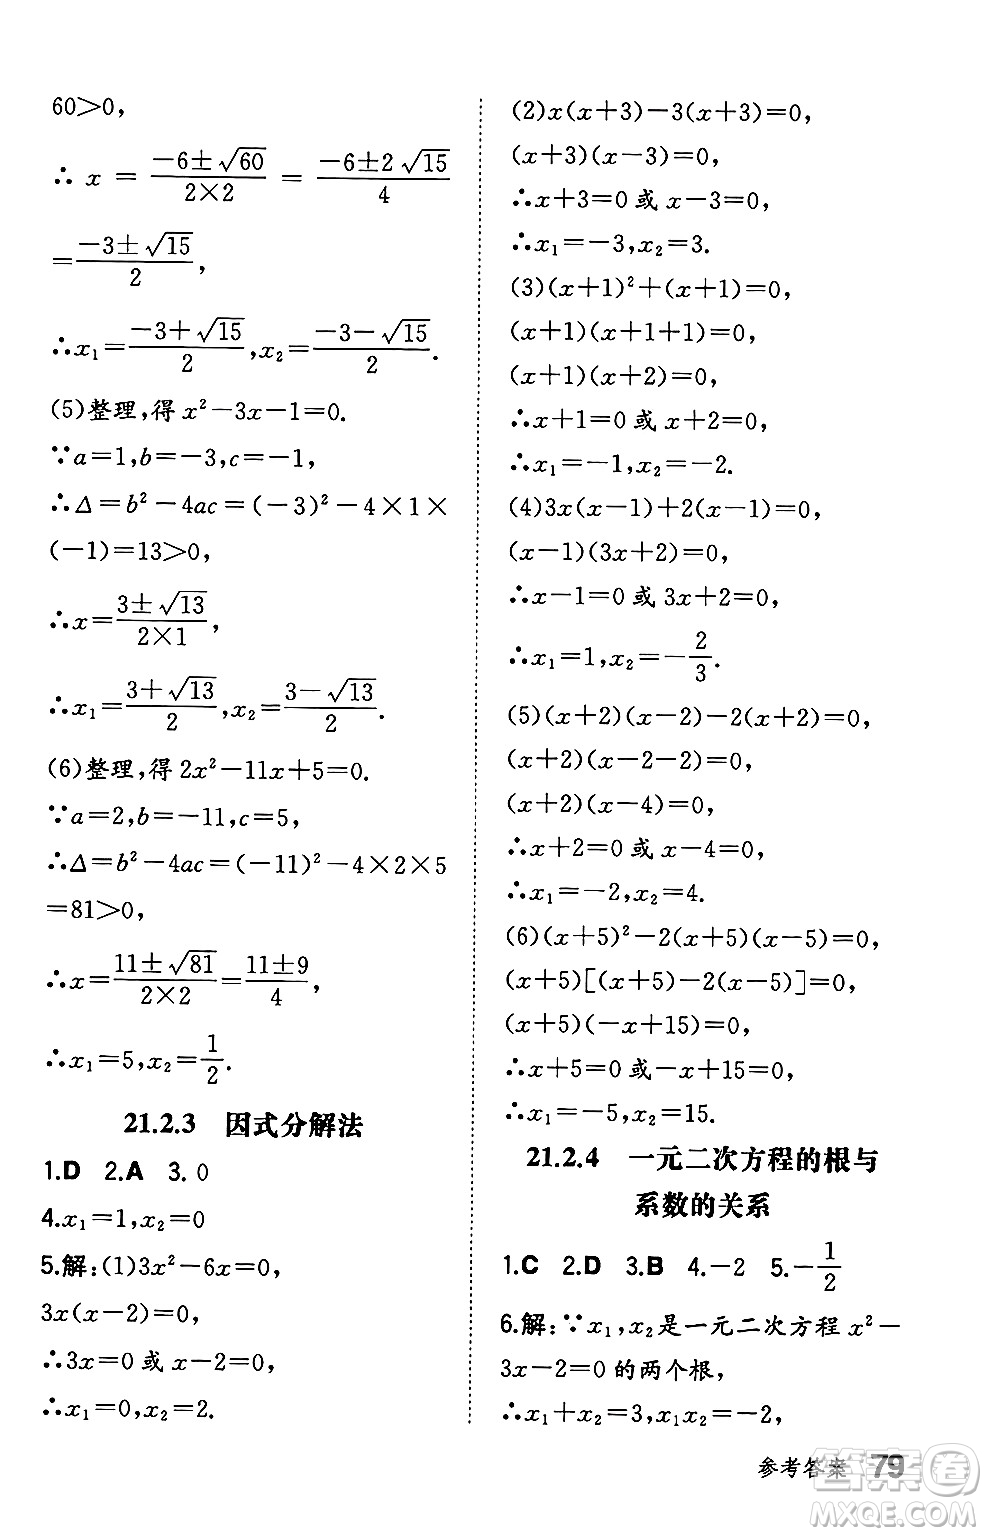 60>0,
∴ x = (-6±√60)/(2×2) = (-6±2√15)/4
=(-3±√15)/2,
∴x₁=(-3+√15)/2,x₂=(-3-√15)/2.
(5)整理,得 x²-3x-1=0.
∵a=1,b=-3,c=-1,
∴Δ=b²-4ac=(-3)²-4×1×
(-1)=13>0,
∴x=(3±√13)/(2×1),
∴x₁=(3+√13)/2,x₂=(3-√13)/2.
(6)整理,得 2x²-11x+5=0.
∵a=2,b=-11,c=5,
∴Δ=b²-4ac=(-11)²-4×2×5
=81>0,
∴x=(11±√81)/(2×2)=(11±9)/4,
∴x₁=5,x₂=1/2.
21.2.3 因式分解法
1.D 2.A 3. 0
4.x₁=1,x₂=0
5.解:(1)3x²-6x=0,
3x(x-2)=0,
∴3x=0 或 x-2=0,
∴x₁=0,x₂=2.
(2)x(x+3)-3(x+3)=0,
(x+3)(x-3)=0,
∴x+3=0 或 x-3=0,
∴x₁=-3,x₂=3.
(3)(x+1)²+(x+1)=0,
(x+1)(x+1+1)=0,
(x+1)(x+2)=0,
∴x+1=0 或 x+2=0,
∴x₁=-1,x₂=-2.
(4)3x(x-1)+2(x-1)=0,
(x-1)(3x+2)=0,
∴x-1=0 或 3x+2=0,
∴x₁=1,x₂=-2/3.
(5)(x+2)(x-2)-2(x+2)=0,
(x+2)(x-2-2)=0,
(x+2)(x-4)=0,
∴x+2=0 或 x-4=0,
∴x₁=-2,x₂=4.
(6)(x+5)²-2(x+5)(x-5)=0,
(x+5)[(x+5)-2(x-5)]=0,
(x+5)(-x+15)=0,
∴x+5=0 或-x+15=0,
∴x₁=-5,x₂=15.
21.2.4 一元二次方程的根与
系数的关系
1.C 2.D 3.B 4.-2 5.-1/2
6.解:∵x₁,x₂是一元二次方程 x²-
3x-2=0 的两个根,
∴x₁+x₂=3,x₁x₂=-2,
参考答案 79
答案圈
MXQE.COM